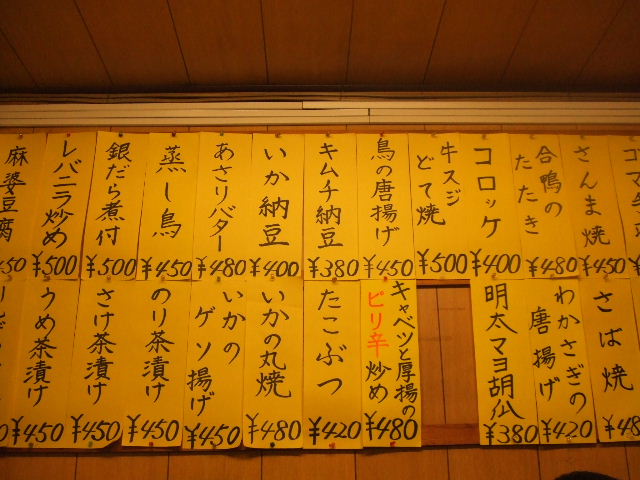 さんま焼
¥450
合鴨の
たたき
¥480
コロッケ
¥400
牛スジ
どて焼
¥500
鳥の唐揚げ
¥450
キムチ納豆
¥380
いか納豆
¥400
あさりバター
¥480
蒸し鳥
¥450
銀だら煮付
¥500
レバニラ炒め
¥500
麻婆豆腐
50
さば焼
¥48
わかさぎの
唐揚げ
¥420
明太マヨ胡瓜
¥380
キャベツと厚揚の
ピリ辛炒め
¥480
たこぶつ
¥420
いかの丸焼
¥480
いかの
ゲソ揚げ
¥450
のり茶漬け
¥450
さけ茶漬け
¥450
うめ茶漬け
¥450